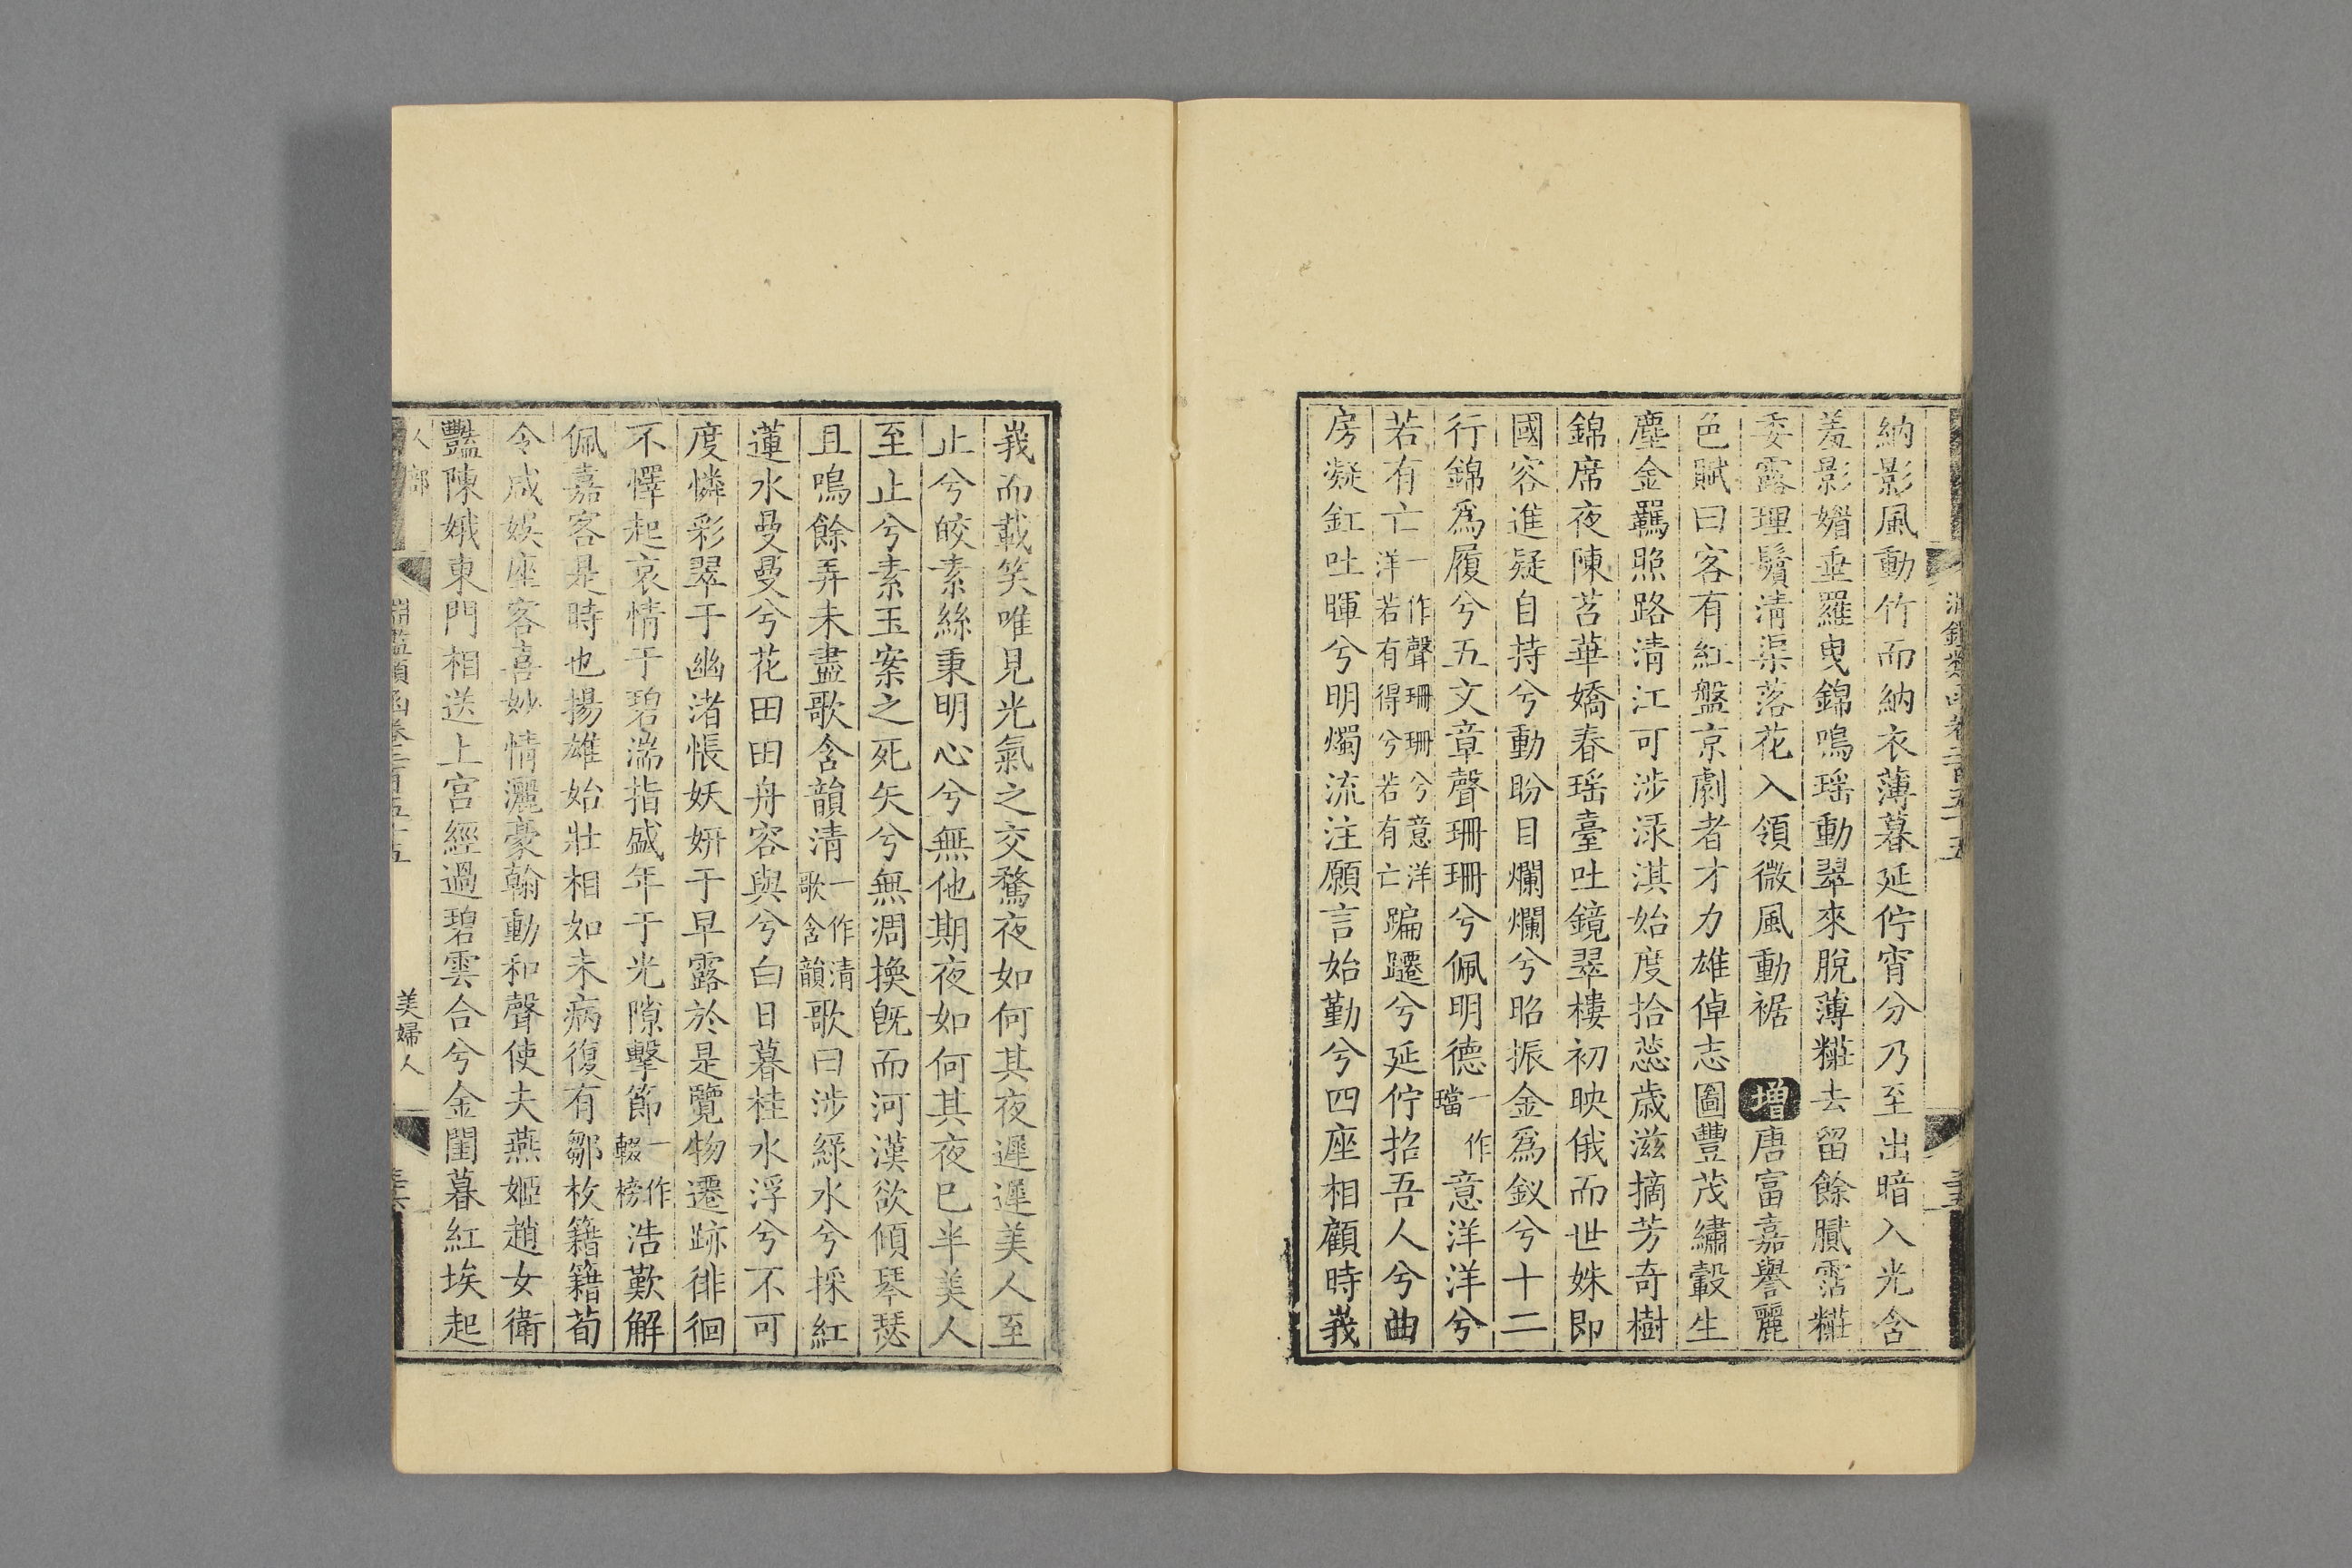 納影風動竹而納衣薄暮延佇宵分乃至出暗入光含
羞影媚垂羅曳錦鳴瑶動翠來脫薄糚去留餘膩霑糚
委露理鬢清渠落花入領微風動裾 增唐富嘉譽麗
色賦曰客有紅盤京劇者才力雄倬志圖豐茂繡轂生
塵金羈照路清江可涉淥淇始度拾蕊歲滋摘芳奇樹
錦席夜陳苕華嬌春瑶臺吐鏡翠樓初映俄而世姝即
國容進疑自持兮動盼目爛爛兮昭振金爲釵兮十二
行錦爲履兮五文章聲珊珊兮佩明德一作璫意洋洋兮
若有亡一作聲珊珊兮意洋洋若有得兮若有亡蹁躚兮延佇招吾人兮曲
房凝釭吐暉兮明燭流注願言始勤兮四座相顧時峩
峩而載笑唯見光氣之交騖夜如何其夜遲遲美人至
止兮皎素絲秉明心兮無他期夜如何其夜巳半美人
至止兮素玉案之死矢兮無凋換旣而河漢欲傾琴瑟
且鳴餘弄未盡歌含韻清一作清歌含韻歌曰涉綠水兮採紅
蓮水曼曼兮花田田舟容與兮白日暮桂水浮兮不可
度憐彩翠于幽渚悵妖妍于早露於是覽物遷跡徘徊
不懌起哀情于碧湍指盛年于光隙擊節一作輟榜浩歎解
佩嘉客是時也揚雄始壯相如未病復有鄒枚籍籍荀
令咸娛座客喜妙情灑豪翰動和聲使夫燕姬趙女衛
豔陳娥東門相送上宮經過碧雲合兮金閨暮紅埃起
淵鑑類函卷二百五十五
美婦人